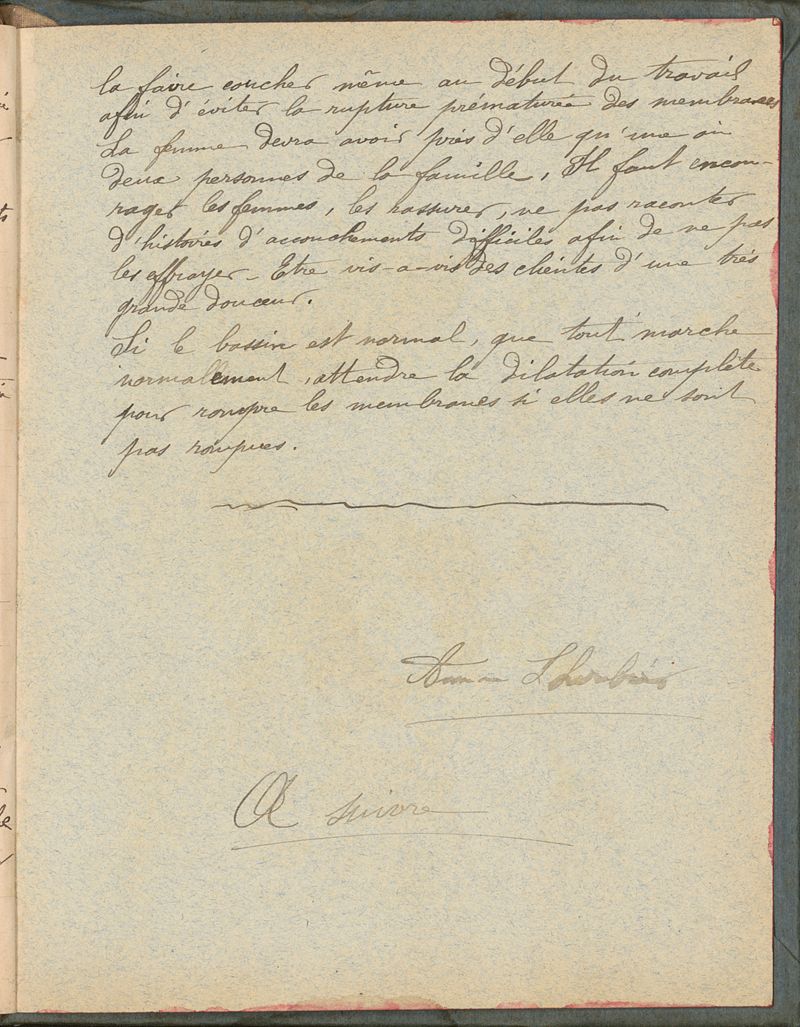 la faire coucher même au début du travail
afin d'éviter la rupture prématurée des membranes
La femme devra avoir près d'elle qu'une ou
deux personnes de la famille, Il faut encou-
rager les femmes, les rassurer, ne pas raconter
d'histoires d'accouchements difficiles afin de ne pas
les effrayer - Etre vis-a-vis des clientes d'une très
grande douceur.
Si le bassin est normal, que tout marche
normalement, attendre la dilatation complète
pour rompre les membranes si elles ne sont
pas rompues.
A suivre